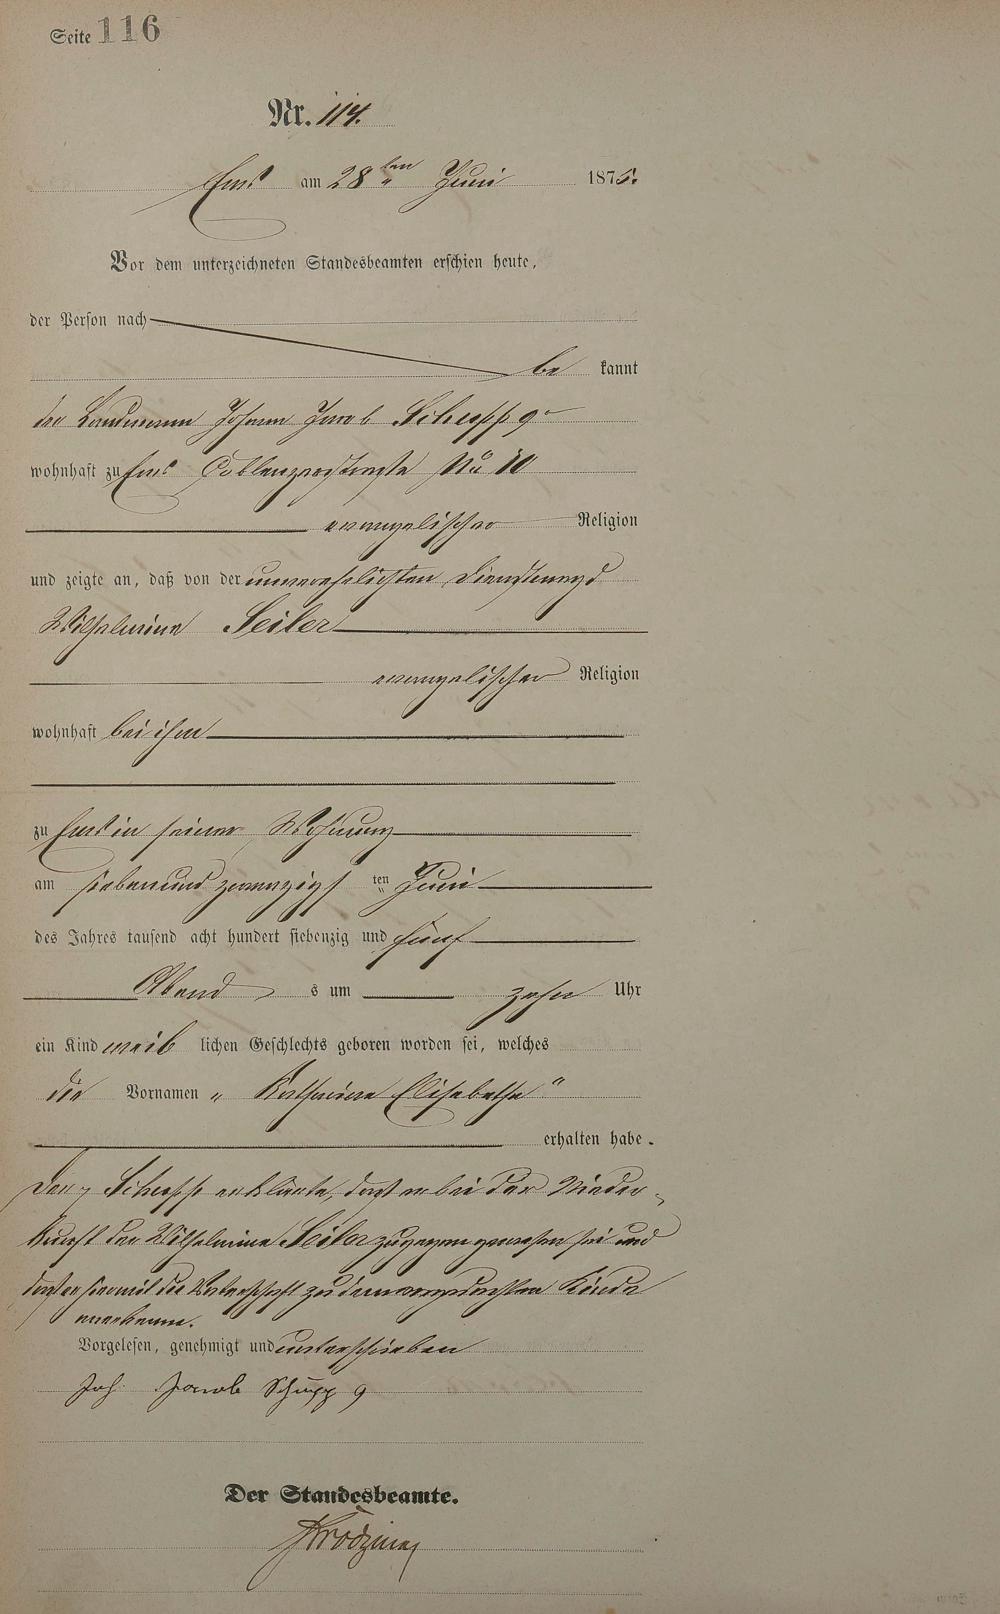 Seite 116
Nr. 114.
Ems am 28ten Juni 1875.
Vor dem unterzeichneten Standesbeamten erschien heute,
der Person nach
be kannt
der Landmann Johann Jacob Schupp 9r
wohnhaft zu Ems Coblenzerstraße No 10
evangelischer Religion
und zeigte an, daß von der unverehelichten Dienstmagd
Wilhelmine Seiler
evangelischer Religion
wohnhaft bei ihm
zu Ems in seiner Wohnung
am siebenundzwanzigs ten Juni
des Jahres tausend acht hundert siebenzig und fünf
Abend s um zehn Uhr
ein Kind weib lichen Geschlechts geboren worden sei, welches
die Vornamen „Katharine Elisabethe“
erhalten habe.
Der Schupp erklärte, daß er bei der Nieder-
kunft der Wilhelmine Seiler zugegen gewesen sei und
daß er hiermit die Vaterschaft zu dem vorgedachten Kinde
anerkenne.
Vorgelesen, genehmigt und unterschrieben
Joh. Jacob Schupp 9
Der Standesbeamte.